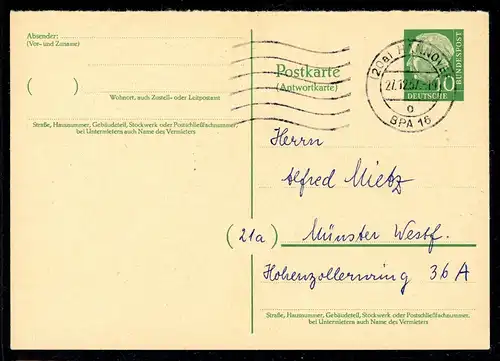 Absender:
(Vor- und Zuname)
( )
Wohnort, auch Zustell- oder Leitpostamt
Straße, Hausnummer, Gebäudeteil, Stockwerk oder Postschließfachnummer,
bei Untermietern auch Name des Vermieters
Postkarte
(Antwortkarte)
(20a) HANNOVER
27.12.57
a
BPA 16
10
DEUTSCHE
BUNDESPOST
Herrn
Alfred Mietz
(21a)
Münster Westf.
Hohenzollernring 36 A
Straße, Hausnummer, Gebäudeteil, Stockwerk oder Postschließfachnummer,
bei Untermietern auch Name des Vermieters